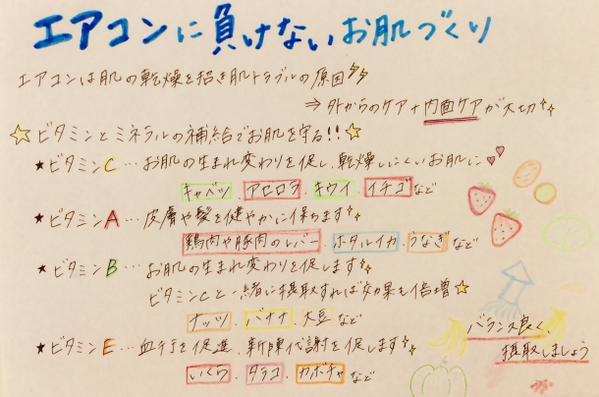 エアコンに負けないお肌づくり
エアコンは肌の乾燥を招き肌トラブルの原因
⇒ 外からのケア+内面ケアが大切
☆ビタミンとミネラルの補給でお肌を守る!!☆
★ビタミンC…お肌の生まれ変わりを促し、乾燥しにくいお肌に♥♥
キャベツ、アセロラ、キウイ、イチゴなど
★ビタミンA…皮膚や髪を健やかに保ちます
鶏肉や豚肉のレバー、ホタルイカ、うなぎなど
★ビタミンB…お肌の生まれ変わりを促します
ビタミンCと一緒に摂取すれば効果も倍増☆
ナッツ、バナナ、大豆など
★ビタミンE…血行を促進、新陳代謝を促します
いくら、タラコ、カボチャなど
バランス良く、
摂取しましょう